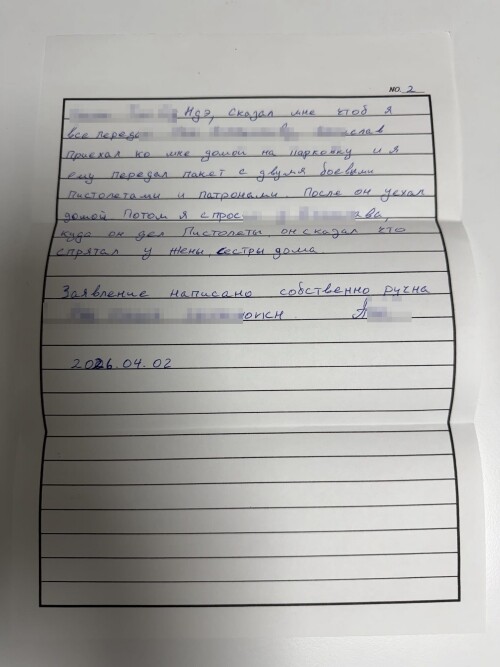 NO. 2
НДЭ, сказал мне чтоб я
все переда слав
Приехал ко мне домой на парковку и я
ему передал пакет с двумя боевыми
Пистолетами и патронами. После он уехал
домой Потом я спрос ава,
куда он дел Пистолеты, он сказал что
спрятал у жены, сестры дома.
Заявление написано собственно ручна
ович
2026.04.02